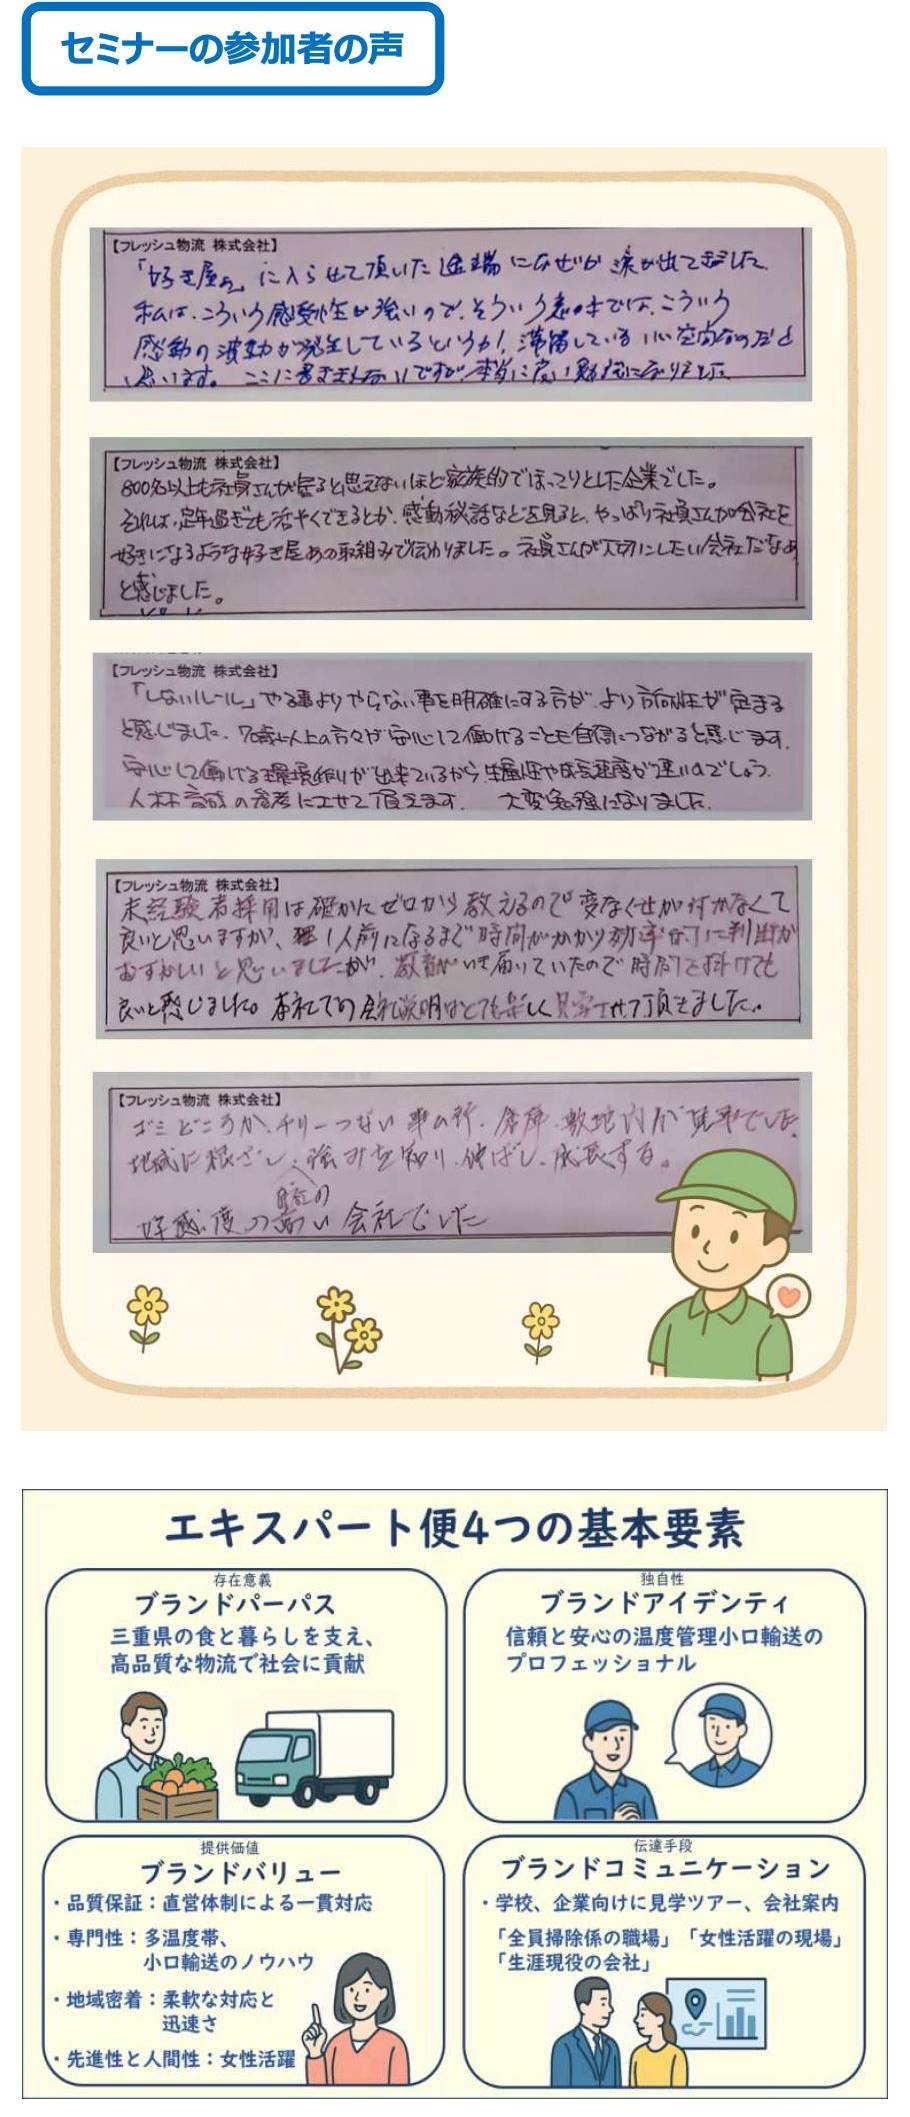 セミナーの参加者の声
【フレッシュ物流 株式会社】
「好き屋ん」に入らせて頂いた途端になぜか涙が出てきました。
私は、こういう感受性が強いので、そういう意味では、こういう
感動の波動が発生しているというか!、滞留しているいい空間なのだと
思います。ここに書ききれないですが、本当に良い勉強になりました
【フレッシュ物流 株式会社】
800名以上も社員さんが居ると思えないほど家族的でほっこりとした企業でした。
それは、定年過ぎても活やくできるとか、感動秘話などを見ると、やっぱり社員さんが会社を
好きになるような好き屋ねの取組みで伝わりました。社員さんが大切にしたい会社だなぁ
と感じました。
【フレッシュ物流 株式会社】
「しないルール」やる事よりやらない事を明確にする方が、より方向性が定まる
と感じました。70歳以上の方々が安心して働けることも自信につながると感じます。
安心して働ける環境作りが出来ているから、生産性や成長速度が速いのでしょう。
人材育成の参考にさせて頂きます。 大変勉強になりました。
【フレッシュ物流 株式会社】
未経験者採用は確かにゼロから教えるので変なくせが付かなくて
良いと思いますが、1人前になるまで時間がかかり効率的に判断が
むずかしいと思いましたが、教育がいき届いていたので時間を掛けても
良いと感じました。本社での会社説明はとても楽しく見学させて頂きました。
【フレッシュ物流 株式会社】
ゴミどころか、チリ一つない車の行、倉庫、敷地内が見事でした。
地域に根ざし、強みを知り、伸ばし、成長する。
好感度の高い会社でした
エキスパート便4つの基本要素
存在意義
ブランドパーパス
三重県の食と暮らしを支え、
高品質な物流で社会に貢献
独自性
ブランドアイデンティ
信頼と安心の温度管理小口輸送の
プロフェッショナル
提供価値
ブランドバリュー
・品質保証：直営体制による一貫対応
・専門性：多温度帯、
小口輸送のノウハウ
・地域密着：柔軟な対応と
迅速さ
・先進性と人間性：女性活躍
伝達手段
ブランドコミュニケーション
・学校、企業向けに見学ツアー、会社案内
「全員掃除係の職場」「女性活躍の現場」
「生涯現役の会社」